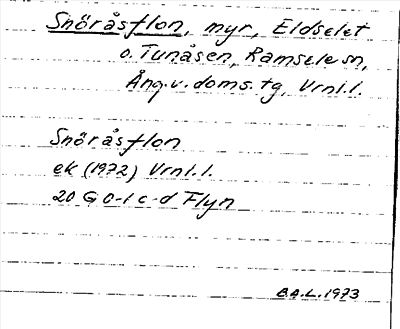 Snöråsflon, myr, Eldselet
o. Tunåsen, Ramsele sn,
Ång. v. doms. tg, Vrnl.l.
Snöråsflon
ek (1972) Vrnl.l.
20 G 0-1 c-d Flyn
B.A.L. 1973